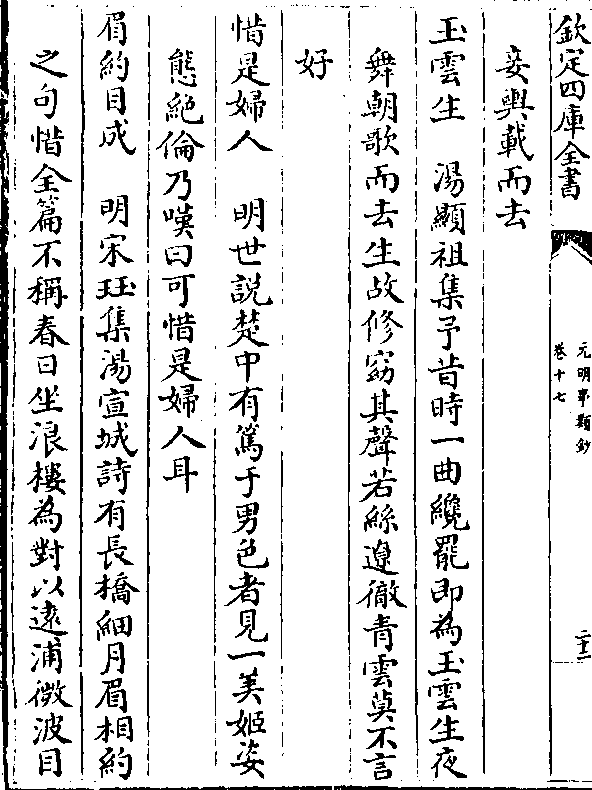 欽定四庫全書
元明事類鈔
卷十七
二十二
妾與載而去
玉雲生　湯顯祖集予昔時一曲纔罷即為玉雲生夜
舞朝歌而去生故修窈其聲若絲遼徹青雲莫不言
好
惜是婦人　明世説楚中有篤于男色者見一美姬姿
態絶倫乃嘆曰可惜是婦人耳
眉約目成　明宋珏集湯宣城詩有長橋細月眉相約
之句惜全篇不稱春日坐浪樓為對以遠浦微波目